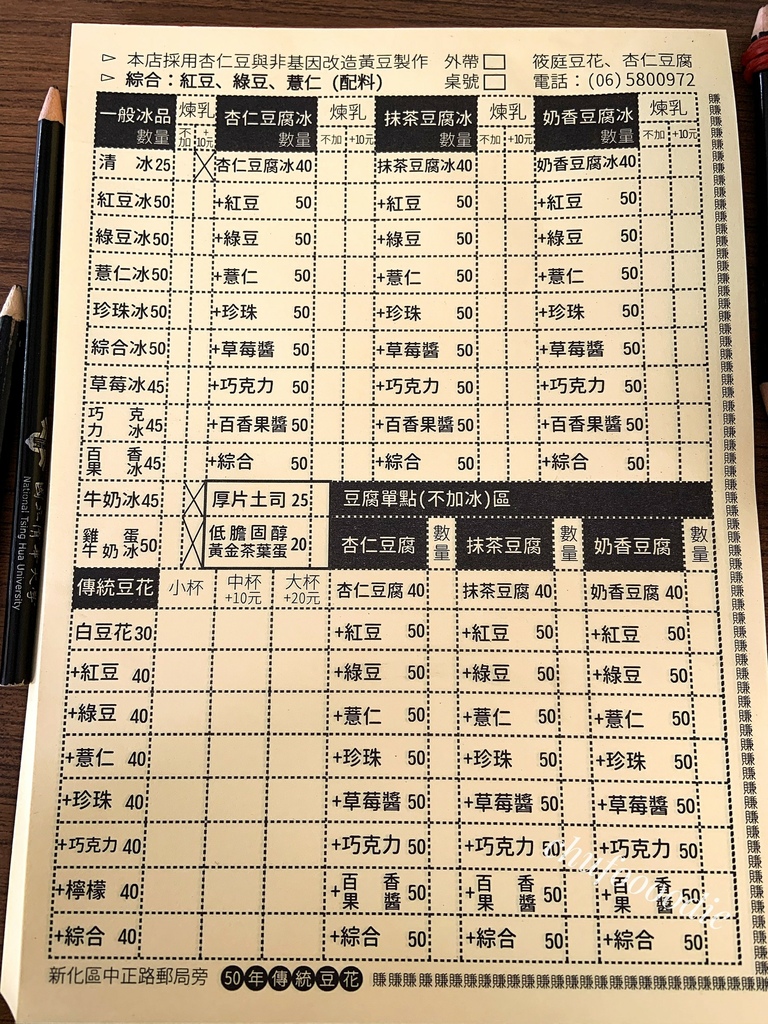 ▷ 本店採用杏仁豆與非基因改造黃豆製作 外帶□ 筱庭豆花、杏仁豆腐
▷ 綜合：紅豆、綠豆、薏仁 (配料) 桌號□ 電話：(06) 5800972
一般冰品 數量 煉乳 不加 +10元 杏仁豆腐冰 數量 煉乳 不加 +10元 抹茶豆腐冰 數量 煉乳 不加 +10元 奶香豆腐冰 數量 煉乳 不加 +10元
清冰25 杏仁豆腐冰40 抹茶豆腐冰40 奶香豆腐冰40
紅豆冰50 +紅豆 50 +紅豆 50 +紅豆 50
綠豆冰50 +綠豆 50 +綠豆 50 +綠豆 50
薏仁冰50 +薏仁 50 +薏仁 50 +薏仁 50
珍珠冰50 +珍珠 50 +珍珠 50 +珍珠 50
綜合冰50 +草莓醬 50 +草莓醬 50 +草莓醬 50
草莓冰45 +巧克力 50 +巧克力 50 +巧克力 50
巧克力冰45 +百香果醬50 +百香果醬50 +百香果醬50
百香果冰45 +綜合 50 +綜合 50 +綜合 50
牛奶冰45 厚片土司 25 豆腐單點(不加冰)區
雞蛋牛奶冰50 低膽固醇黃金茶葉蛋20 杏仁豆腐 數量 抹茶豆腐 數量 奶香豆腐 數量
傳統豆花 小杯 中杯+10元 大杯+20元 杏仁豆腐 40 抹茶豆腐 40 奶香豆腐 40
白豆花30 +紅豆 50 +紅豆 50 +紅豆 50
+紅豆 40 +綠豆 50 +綠豆 50 +綠豆 50
+綠豆 40 +薏仁 50 +薏仁 50 +薏仁 50
+薏仁 40 +珍珠 50 +珍珠 50 +珍珠 50
+珍珠 40 +草莓醬 50 +草莓醬 50 +草莓醬 50
+巧克力 40 +巧克力 50 +巧克力 50 +巧克力 50
+檸檬 40 +百香果醬 50 +百香果醬 50 +百香果醬 50
+綜合 40 +綜合 50 +綜合 50 +綜合 50
新化區中正路郵局旁 50年傳統豆花 賺賺賺賺賺賺賺賺賺賺賺賺賺賺賺賺賺賺賺賺賺賺賺賺賺
National Tsing Hua University